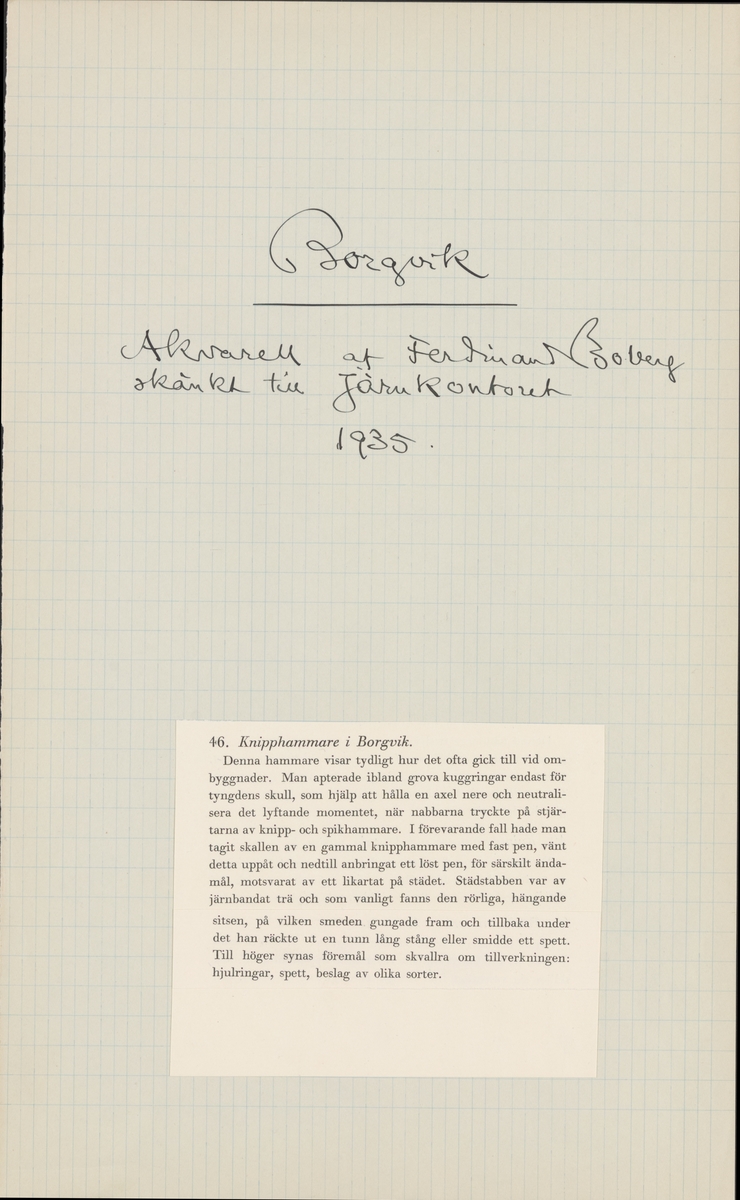 Borgvik
Akvarell af Ferdinand Boberg
skänkt till Järnkontoret
1935.
46. Knipphammare i Borgvik.
Denna hammare visar tydligt hur det ofta gick till vid om-
byggnader. Man apterade ibland grova kuggringar endast för
tyngdens skull, som hjälp att hålla en axel nere och neutrali-
sera det lyftande momentet, när nabbarna tryckte på stjär-
tarna av knipp- och spikhammare. I förevarande fall hade man
tagit skallen av en gammal knipphammare med fast pen, vänt
detta uppåt och nedtill anbringat ett löst pen, för särskilt ända-
mål, motsvarat av ett likartat på städet. Städstabben var av
järnbandat trä och som vanligt fanns den rörliga, hängande
sitsen, på vilken smeden gungade fram och tillbaka under
det han räckte ut en tunn lång stång eller smidde ett spett.
Till höger synas föremål som skvallra om tillverkningen:
hjulringar, spett, beslag av olika sorter.